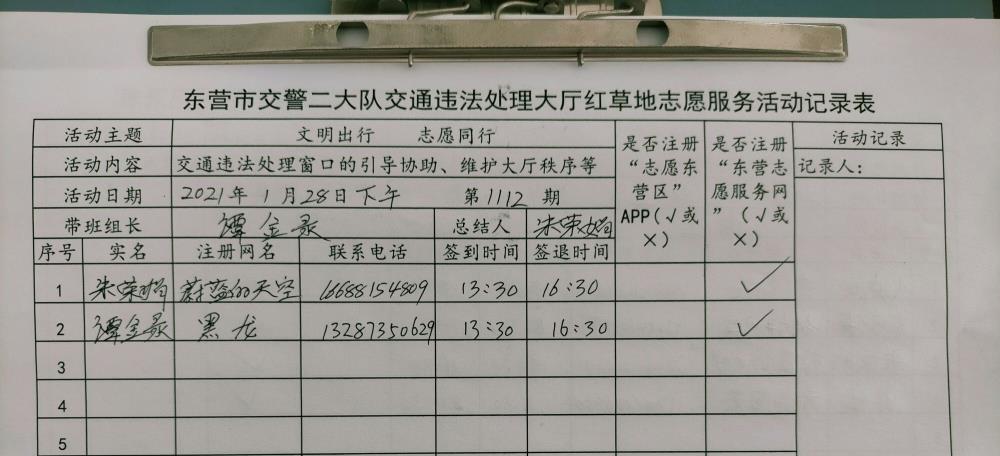 东营市交警二大队交通违法处理大厅红草地志愿服务活动记录表
活动主题 文明出行 志愿同行 是否注册“志愿东营区”APP(√或×) 是否注册“东营志愿服务网”(√或×) 活动记录
活动内容 交通违法处理窗口的引导协助、维护大厅秩序等 记录人:
活动日期 2021年 1月28日下午 第1112期
带班组长 谭金录 总结人 朱荣娟
序号 实名 注册网名 联系电话 签到时间 签退时间
1 朱荣娟 蔚蓝的天空 16688154809 13:30 16:30 √
2 谭金录 黑龙 13287350629 13:30 16:30 √
3
4
5